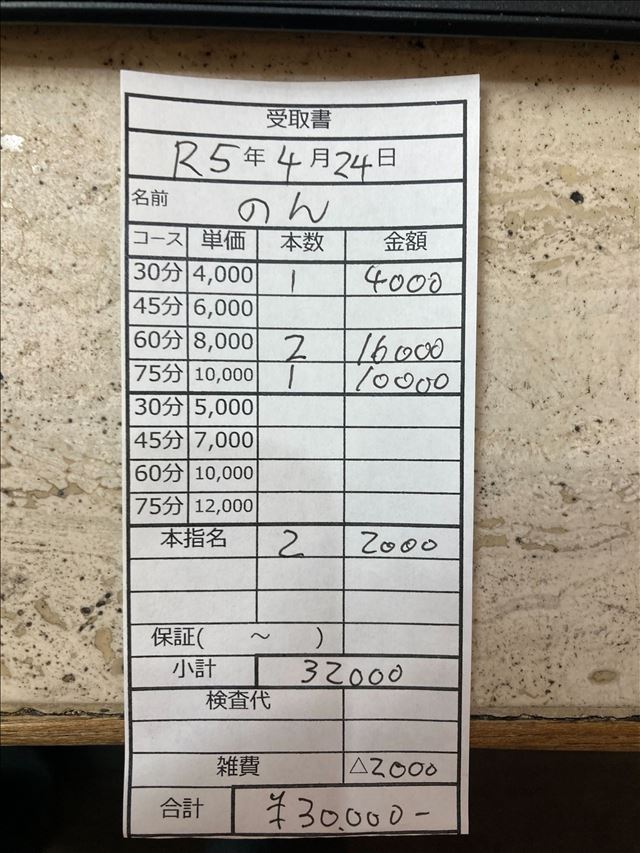 受取書
R5年4月24日
名前 のん
コース 単価 本数 金額
30分 4,000 1 4000
45分 6,000
60分 8,000 2 16000
75分 10,000 1 10000
30分 5,000
45分 7,000
60分 10,000
75分 12,000
本指名 2 2000
保証( ～ )
小計 32000
検査代
雑費 △2000
合計 ¥30.000-